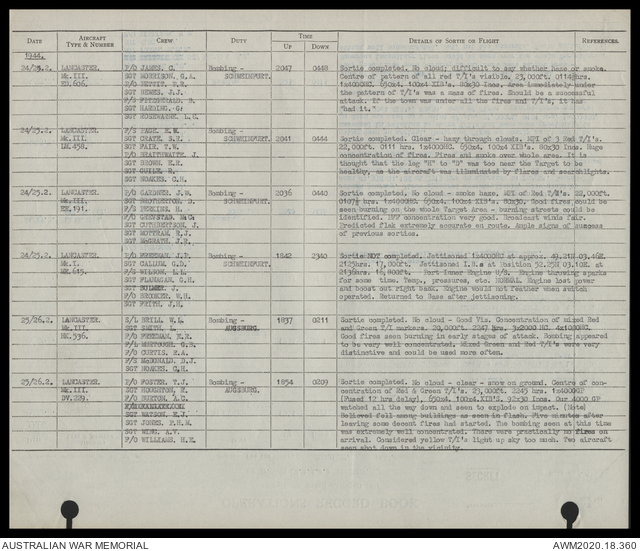 DATE AIRCRAFT TYPE & NUMBER CREW DUTY TIME UP DOWN DETAILS OF SORTIE OR FLIGHT REFERENCES.
1944.
24/25.2. LANCASTER. Mk.III. ED.606. Bombing - SCHWEINFURT. 2047 0448
F/O JAMES, C.
SGT MORRISON, G.A.
SGT HEWES, J.J.
P/O FITZGERALD, B.
SGT HARRING, G.
SGT ROSEWARNE, L.C.
Sortie completed. No cloud; difficult to say whether haze or smoke.
Centre of pattern of all red T/I's visible. 23,000ft. 0114½hrs.
1x4000HC. 650x4. 100x4 XIB's. 80x30 Incs. Area immediately under
the pattern of T/I's was a mass of fires. Should be a successful
attack. If the town was under all the fires and T/I's, it has
"had it."
24/25.2. LANCASTER. Mk.III. LM.458. Bombing - SCHWEINFURT. 2041 0444
F/S PAGE, R.W.
SGT CRAFT, S.E.
SGT FAIR, T.W.
F/O BRAITHWAITE, J.
SGT BROWN, H.R.
SGT GUILE, R.
SGT NOAKES, C.H.
Sortie completed. Clear - hazy through clouds. MPI of 3 Red T/I's.
22,000ft. 0111 hrs. 1x4000HC. 650x4. 100x4 XIB's. 80x30 Incs. Huge
concentration of fires. Fires and smoke over whole area. It is
thought that the leg "H" to "D" was too near the Target to be
healthy, as the aircraft was illuminated by flares and searchlights.
24/25.2. LANCASTER. Mk.III. ME.191. Bombing - SCHWEINFURT. 2036 0440
F/O GARDNER, J.W.
SGT BROTHERTON, G.
F/S PERKINS, H.
SGT CUTHBERTSON, J.
SGT MOTTRAM, R.J.
SGT McGRATH, J.R.
Sortie completed. No cloud - smoke haze. MPI of Red T/I's. 22,000ft.
0107½ hrs. 1x4000HC 600x4. 100x4 XIB's. 80x30. Good fires could be
seen burning on the whole Target Area - burning streets could be
identified. PFF concentration very good. Broadcast winds fair.
Predicted flak extremely accurate on route. Ample signs of success
of previous sorties.
24/25.2. LANCASTER. Mk.I. ME.615. Bombing - SCHWEINFURT. 1842 2340
P/O FREEMAN, J.P.
SGT CALLUM, G.D.
F/S WILSON, L.L.
SGT FLANAGAN, G.H.
F/O BROOKER, W.H.
SGT FRITH, J.H.
Sortie NOT completed. Jettisoned 1x4000HC at approx. 49.21N 03.46E.
2125hrs. 17,000ft. Jettisoned I.B.s at Position 52.25N 03.10E. at
2136hrs. 16,800ft. Port Inner Engine U/S. Engine throwing sparks
for some time. Temp., pressures, etc. NORMAL. Engine lost power
and boost out right back. Engine would not feather when switch
operated. Returned to Base after jettisoning.
25/26.2. LANCASTER. Mk.III. ME.336. Bombing - AUGSBURG. 1837 0211
S/L BRILL, W.L.
SGT SMITH, L.
P/O FREEMAN, E.R.
P/O CURTIS, R.A.
F/S McDONALD, D.J.
SGT NOAKES, C.H.
Sortie completed. No cloud - Good Vis. Concentration of mixed Red
and Green T/I markers. 20,000ft. 2247 hrs. 3x2000 HC. 4x1000HC.
Good fires seen burning in early stages of attack. Bombing appeared
to be very well concentrated. Mixed Green and Red T/I's were very
distinctive and could be used more often.
25/26.2. LANCASTER. Mk.III. DV.229. Bombing - AUGSBURG. 1854 0209
P/O FOSTER, T.J.
SGT HOUGHTON, R.
F/O BURTON, A.C.
SGT WATSON, E.J.
SGT JONES, F.H.M.
SGT WING, A.V.
F/O WILLIAMS, H.E.
Sortie completed. No cloud - clear - snow on ground. Centre of con-
centration of Red & Green T/I's. 23,000ft. 2245 hrs. 1x4000GP
(Fused 12 hrs delay), 650x4. 100x4.XIB'S. 92x30 Incs. Our 4000 GP
watched all the way down and seen to explode on impact. (Note)
Believed fell many buildings as seen in flash. Five minutes after
leaving some decent fires had started. The bombing seen at this time
was extremely well concentrated. There were practically no fires on
arrival. Considered yellow T/I's light up sky too much. Two aircraft
seen shot down in the vicinity.
AUSTRALIAN WAR MEMORIAL
AWM2020.18.360